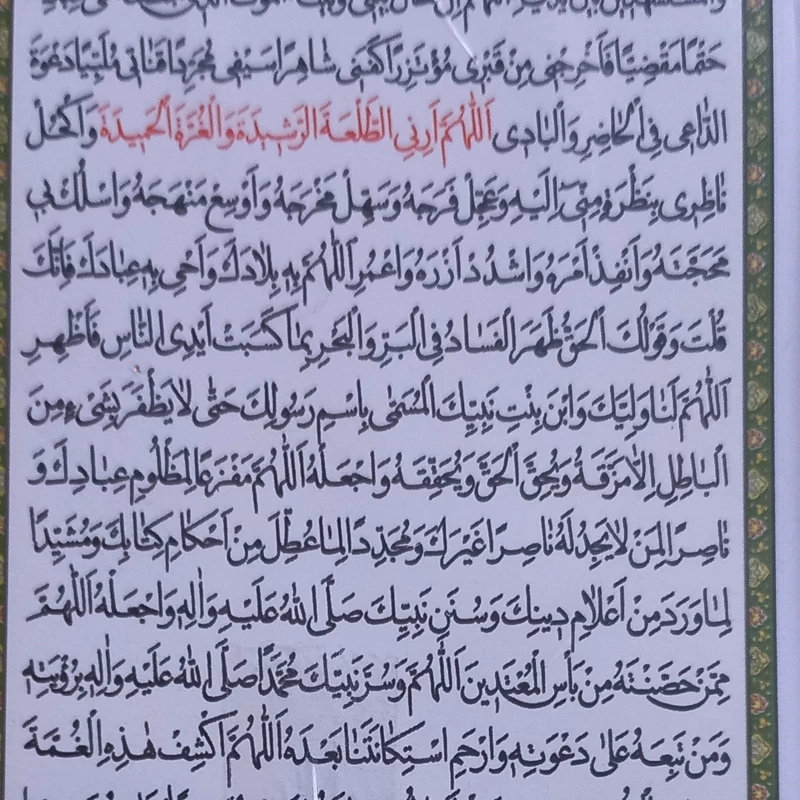 حَتْمًا مَقْضِيًّا فَاَخْرِجْنِى مِنْ قَبْرِى مُؤْتَزِرًا كَفَنِى شَاهِرًا سَيْفِى مُجَرِّدًا قَنَاتِى مُلَبِّيًا دَعْوَةَ
الدَّاعِى فِى الْحَاضِرِ وَالْبَادِى اَللّٰهُمَّ اَرِنِي الطَّلْعَةَ الرَّشِيدَةَ وَالْغُرَّةَ الْحَمِيدَةَ وَاكْحُلْ
نَاظِرِى بِنَظْرَةٍ مِنِّىٓ اِلَيْهِ وَعَجِّلْ فَرَجَهُ وَسَهِّلْ مَخْرَجَهُ وَاَوْسِعْ مَنْهَجَهُ وَاسْلُكْ بِى
مَحَجَّتَهُ وَاَنْفِذْ اَمْرَهُ وَاشْدُدْ اَزْرَهُ وَاعْمُرِ اللّٰهُمَّ بِهِ بِلَادَكَ وَاَحْىِ بِهِ عِبَادَكَ فَاِنَّكَ
قُلْتَ وَقَوْلُكَ الْحَقُّ ظَهَرَ الْفَسَادُ فِى الْبَرِّ وَالْبَحْرِ بِمَا كَسَبَتْ اَيْدِى النَّاسِ فَاَظْهِرِ
اللّٰهُمَّ لَنَا وَلِيَّكَ وَابْنَ بِنْتِ نَبِيِّكَ الْمُسَمّٰى بِاسْمِ رَسُولِكَ حَتّٰى لَا يَظْفَرَ بِشَىْءٍ مِنَ
الْبَاطِلِ اِلَّا مَزَّقَهُ وَيُحِقَّ الْحَقَّ وَيُحَقِّقَهُ وَاجْعَلْهُ اَللّٰهُمَّ مَفْزَعًا لِمَظْلُومِ عِبَادِكَ وَ
نَاصِرًا لِمَنْ لَا يَجِدُ لَهُ نَاصِرًا غَيْرَكَ وَمُجَدِّدًا لِمَا عُطِّلَ مِنْ اَحْكَامِ كِتَابِكَ وَمُشَيِّدًا
لِمَا وَرَدَ مِنْ اَعْلَامِ دِينِكَ وَسُنَنِ نَبِيِّكَ صَلَّى اللهُ عَلَيْهِ وَاٰلِهِ وَاجْعَلْهُ اَللّٰهُمَّ
مِمَّنْ حَصَّنْتَهُ مِنْ بَأْسِ الْمُعْتَدِينَ اَللّٰهُمَّ وَسُرَّ نَبِيَّكَ مُحَمَّدًا صَلَّى اللهُ عَلَيْهِ وَاٰلِهِ بِرُؤْيَتِهِ
وَمَنْ تَبِعَهُ عَلٰى دَعْوَتِهِ وَارْحَمِ اسْتِكَانَتَنَا بَعْدَهُ اَللّٰهُمَّ اكْشِفْ هٰذِهِ الْغُمَّةَ